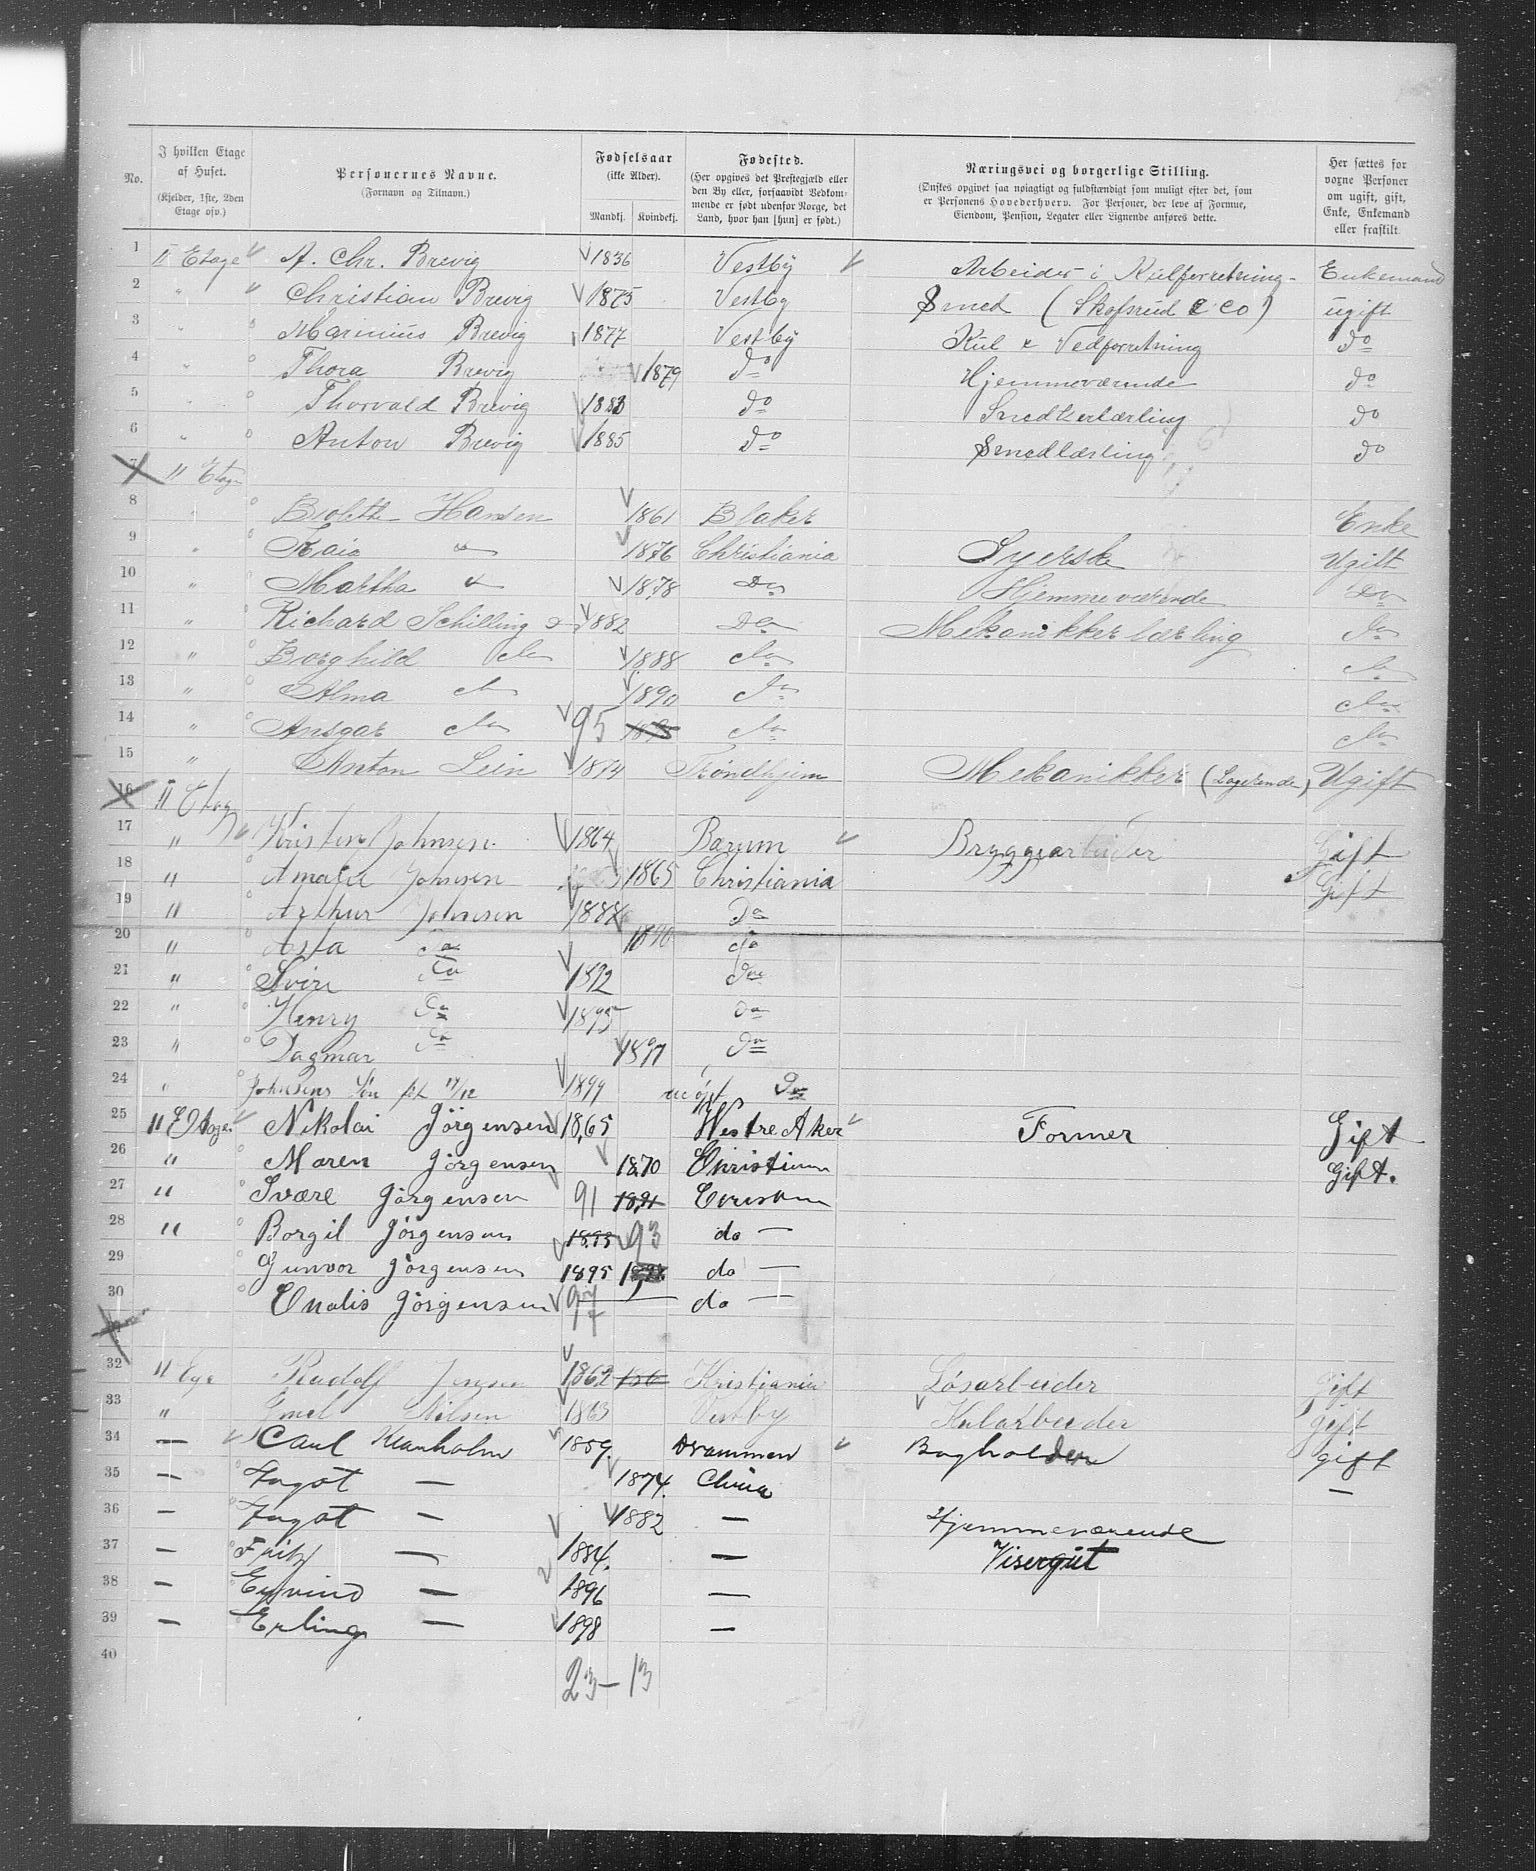 No.
I hvilken Etage af Huset. (Kjelder, 1ste, 2den Etage osv.)
Personernes Navne. (Fornavn og Tilnavn.)
Fødselsaar (ikke Alder). Mandkj. Kvindekj.
Fødested. (Her opgives det Prestegjæld eller den By eller, forsaavidt Vedkommende er født udenfor Norge, det Land, hvor han [hun] er født.)
Næringsvei og borgerlige Stilling. (Ønskes opgivet saa nøiagtigt og fuldstændigt som muligt efter det, som er Personens Hovederhverv. For Personer, der leve af Formue, Eiendom, Pension, Legater eller Lignende anføres dette.
Her sættes for voxne Personer om ugift, gift, Enke, Enkemand eller fraskilt.
1 II Etage A. Chr. Brevig 1836 Vestby Arbeider i Kulforretning Enkemand
2 " Christian Brevig 1875 Vestby Smed (Skofsrud & Co) ugift
3 " Marinius Brevig 1877 Vestby Kul & Vedforretning do
4 " Thora Brevig 1879 do Hjemmeværende do
5 " Thorvald Brevig 1883 do Snedkerlærling do
6 " Anton Brevig 1885 do Smedlærling do
7 II Etage
8 " Bolette Hansen 1861 Blaker Enke
9 " Kaia " 1876 Christiania Syerske Ugift
10 " Martha " 1878 Do Hjemmeværende Do
11 " Richard Schilling do 1882 Do Mekanikker lærling do
12 " Borghild do 1888 do do
13 " Alma do 1890 do do
14 " Ansgar do 95 1895 do do
15 " Anton Lein 1874 Trondhjem Mekanikker (Logerende) Ugift
16 II Etag
17 " Kristen Johnsen 1864 Bærum Bryggearbeider Gift
18 " Amalie Johnsen 1865 Christiania Gift
19 " Arthur Johnsen 1888 Do
20 " Asta Do 1890 do
21 " Sven Do 1892 Do
22 " Henry Do 1895 Do
23 " Dagmar Do 1897 Do
24 " Johnsens Søn født 17/12 1899 Do
25 II Etage Nikolai Jörgensen 1865 Westre Aker Former Gift
26 " Maren Jörgensen 1870 Christian Gift.
27 " Svære Jörgensen 91 1891
28 " Borgil Jörgensen 1893 93 do —
29 Gunvor Jörgensen 1895 do —
30 Jörgensen 97 — do —
32 II Rudolf Jensen 1862 Kristiania Løsarbeider gift
33 " Emil Nilsen 1863 Vestby Kularbeider gift
34 — Carl 1859. Drammen Bogholder gift
35 — — 1874. China —
36 — — 1882 — Hjemmeværende
37 — Fritz — 1884. — Visergut
38 — Eyvind — 1896 —
39 — Erling — 1898 —
40
23 – 13